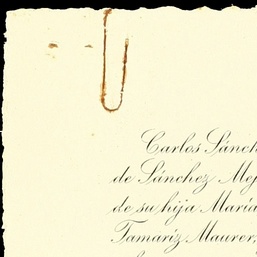 Carlos Sánch
de Sánchez Mej
de su hija María
Tamariz Maurer,